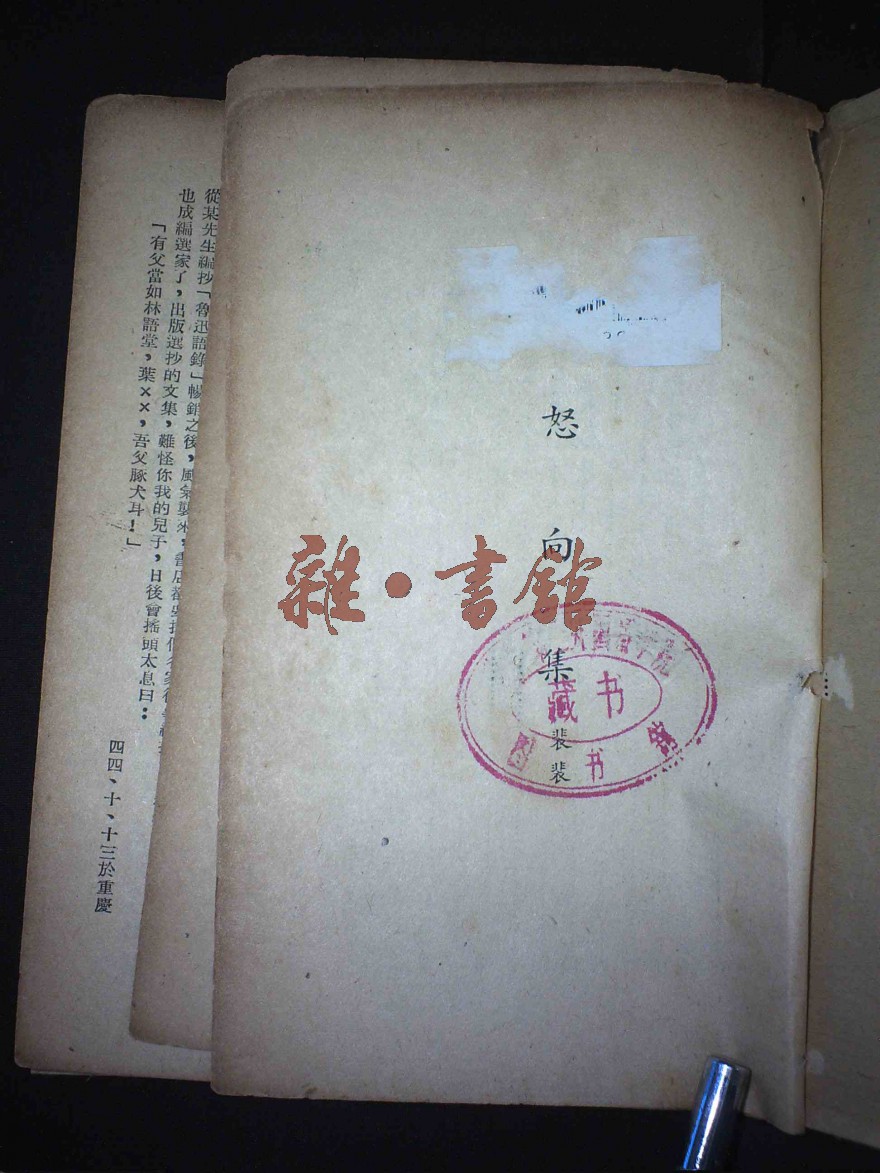 怒向集
裴裴
雜·書館
藏书
图书馆
學院
從某先生編抄「魯迅語錄」暢銷之後，風氣襲來，書店
也成編選家了，出版選抄的文集，難怪你我的兒子，日後會搖頭太息曰：
「有父當如林語堂，葉××，吾父豚犬耳！」
四四、十、十三於重慶